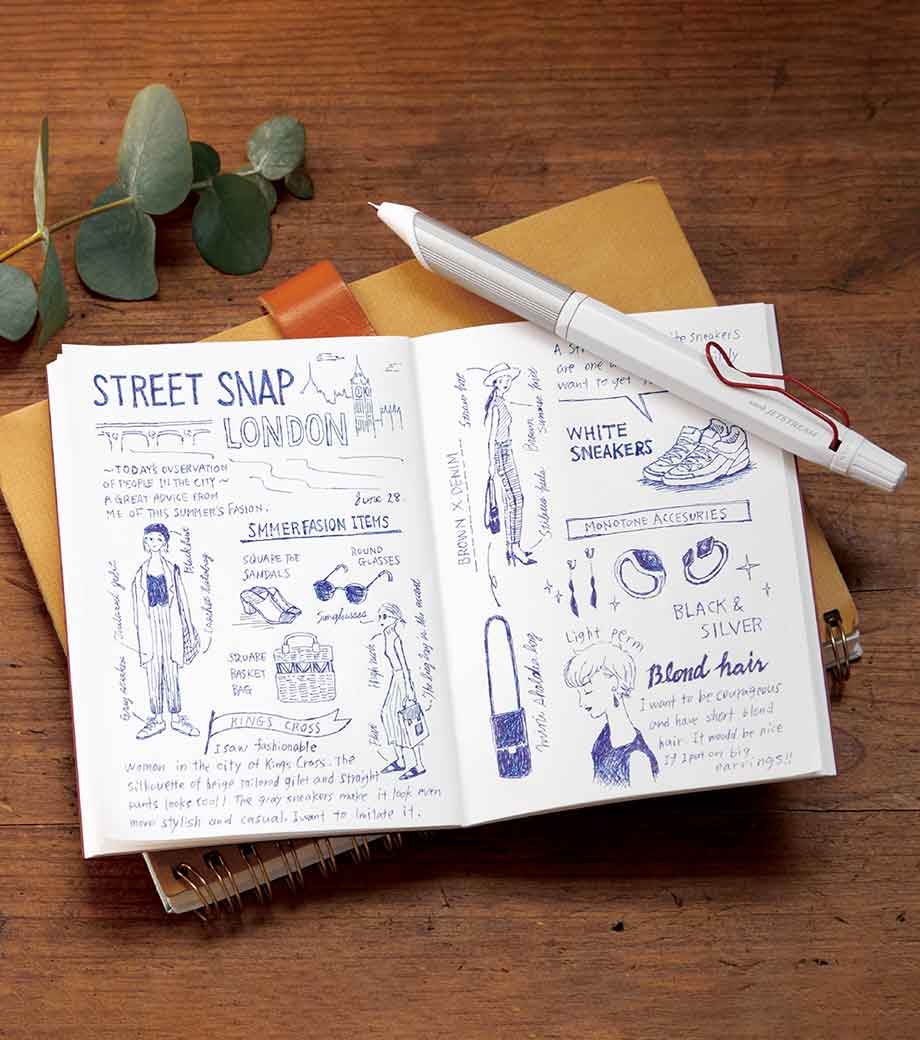 STREET SNAP
LONDON
~TODAY'S OVSERVATION
OF PEOPLE IN THE CITY~
A GREAT ADVICE FROM
ME OF THIS SUMMER'S FASION.
June 28.
SMMER FASION ITEMS
SQUARE TOE
SANDALS
ROUND
GLASSES
Sunglasses
SQUARE
BASKET
BAG
Black hair
Tailored
Gray sneakers
High neck
The big bag is the accent
Flare
KINGS CROSS
I saw fashionable
women in the city of Kings Cross. The
silhouette of beige tailored gilet and straight
pants looks cool! The gray sneakers make it look even
more stylish and casual. I want to imitate it.
BROWN X DENIM
Straw hat
Brown
sneakers
are one
want to get
WHITE
SNEAKERS
uni JETSTREAM
MONOTONE ACCESURIES
BLACK &
SILVER
Light perm
Blond hair
I want to be courageous
and have short blond
hair. It would be nice
if I put on big
earrings!!
bag